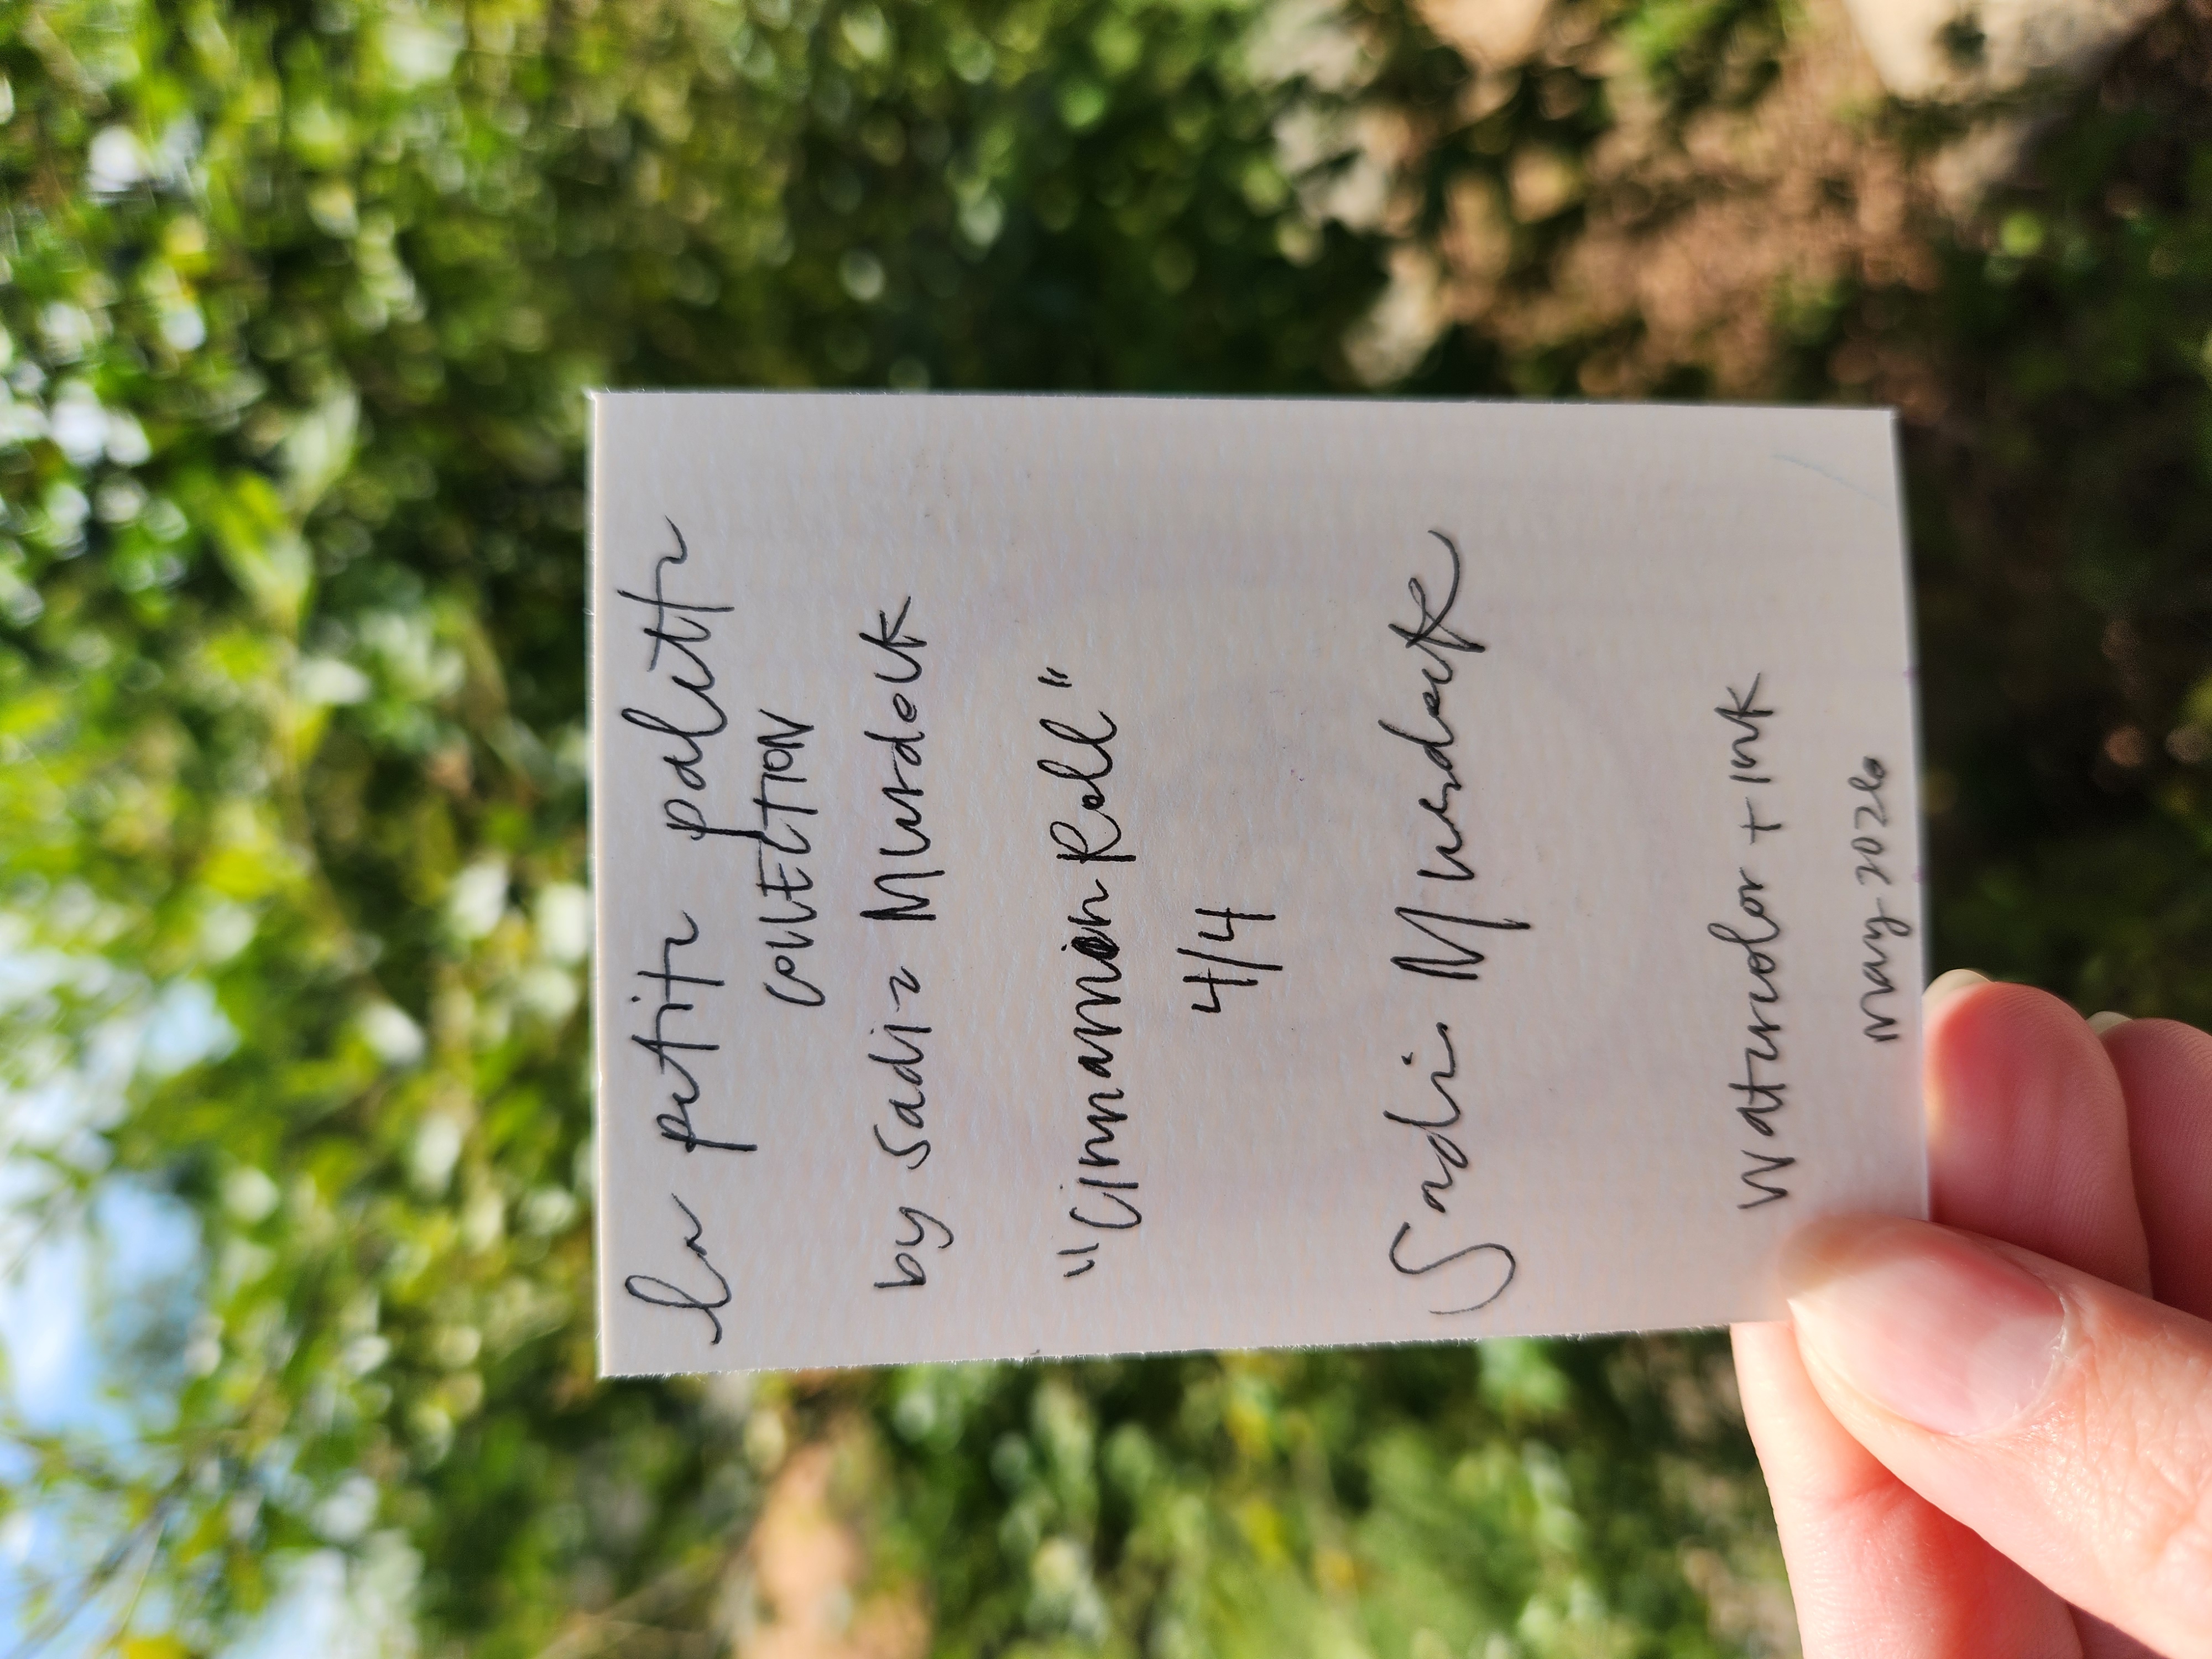 la petite palette
COLLECTION
by Sadie Murdock
"Cinnamon Roll"
4/4
Sadie Murdock
Watercolor + ink
May 2026